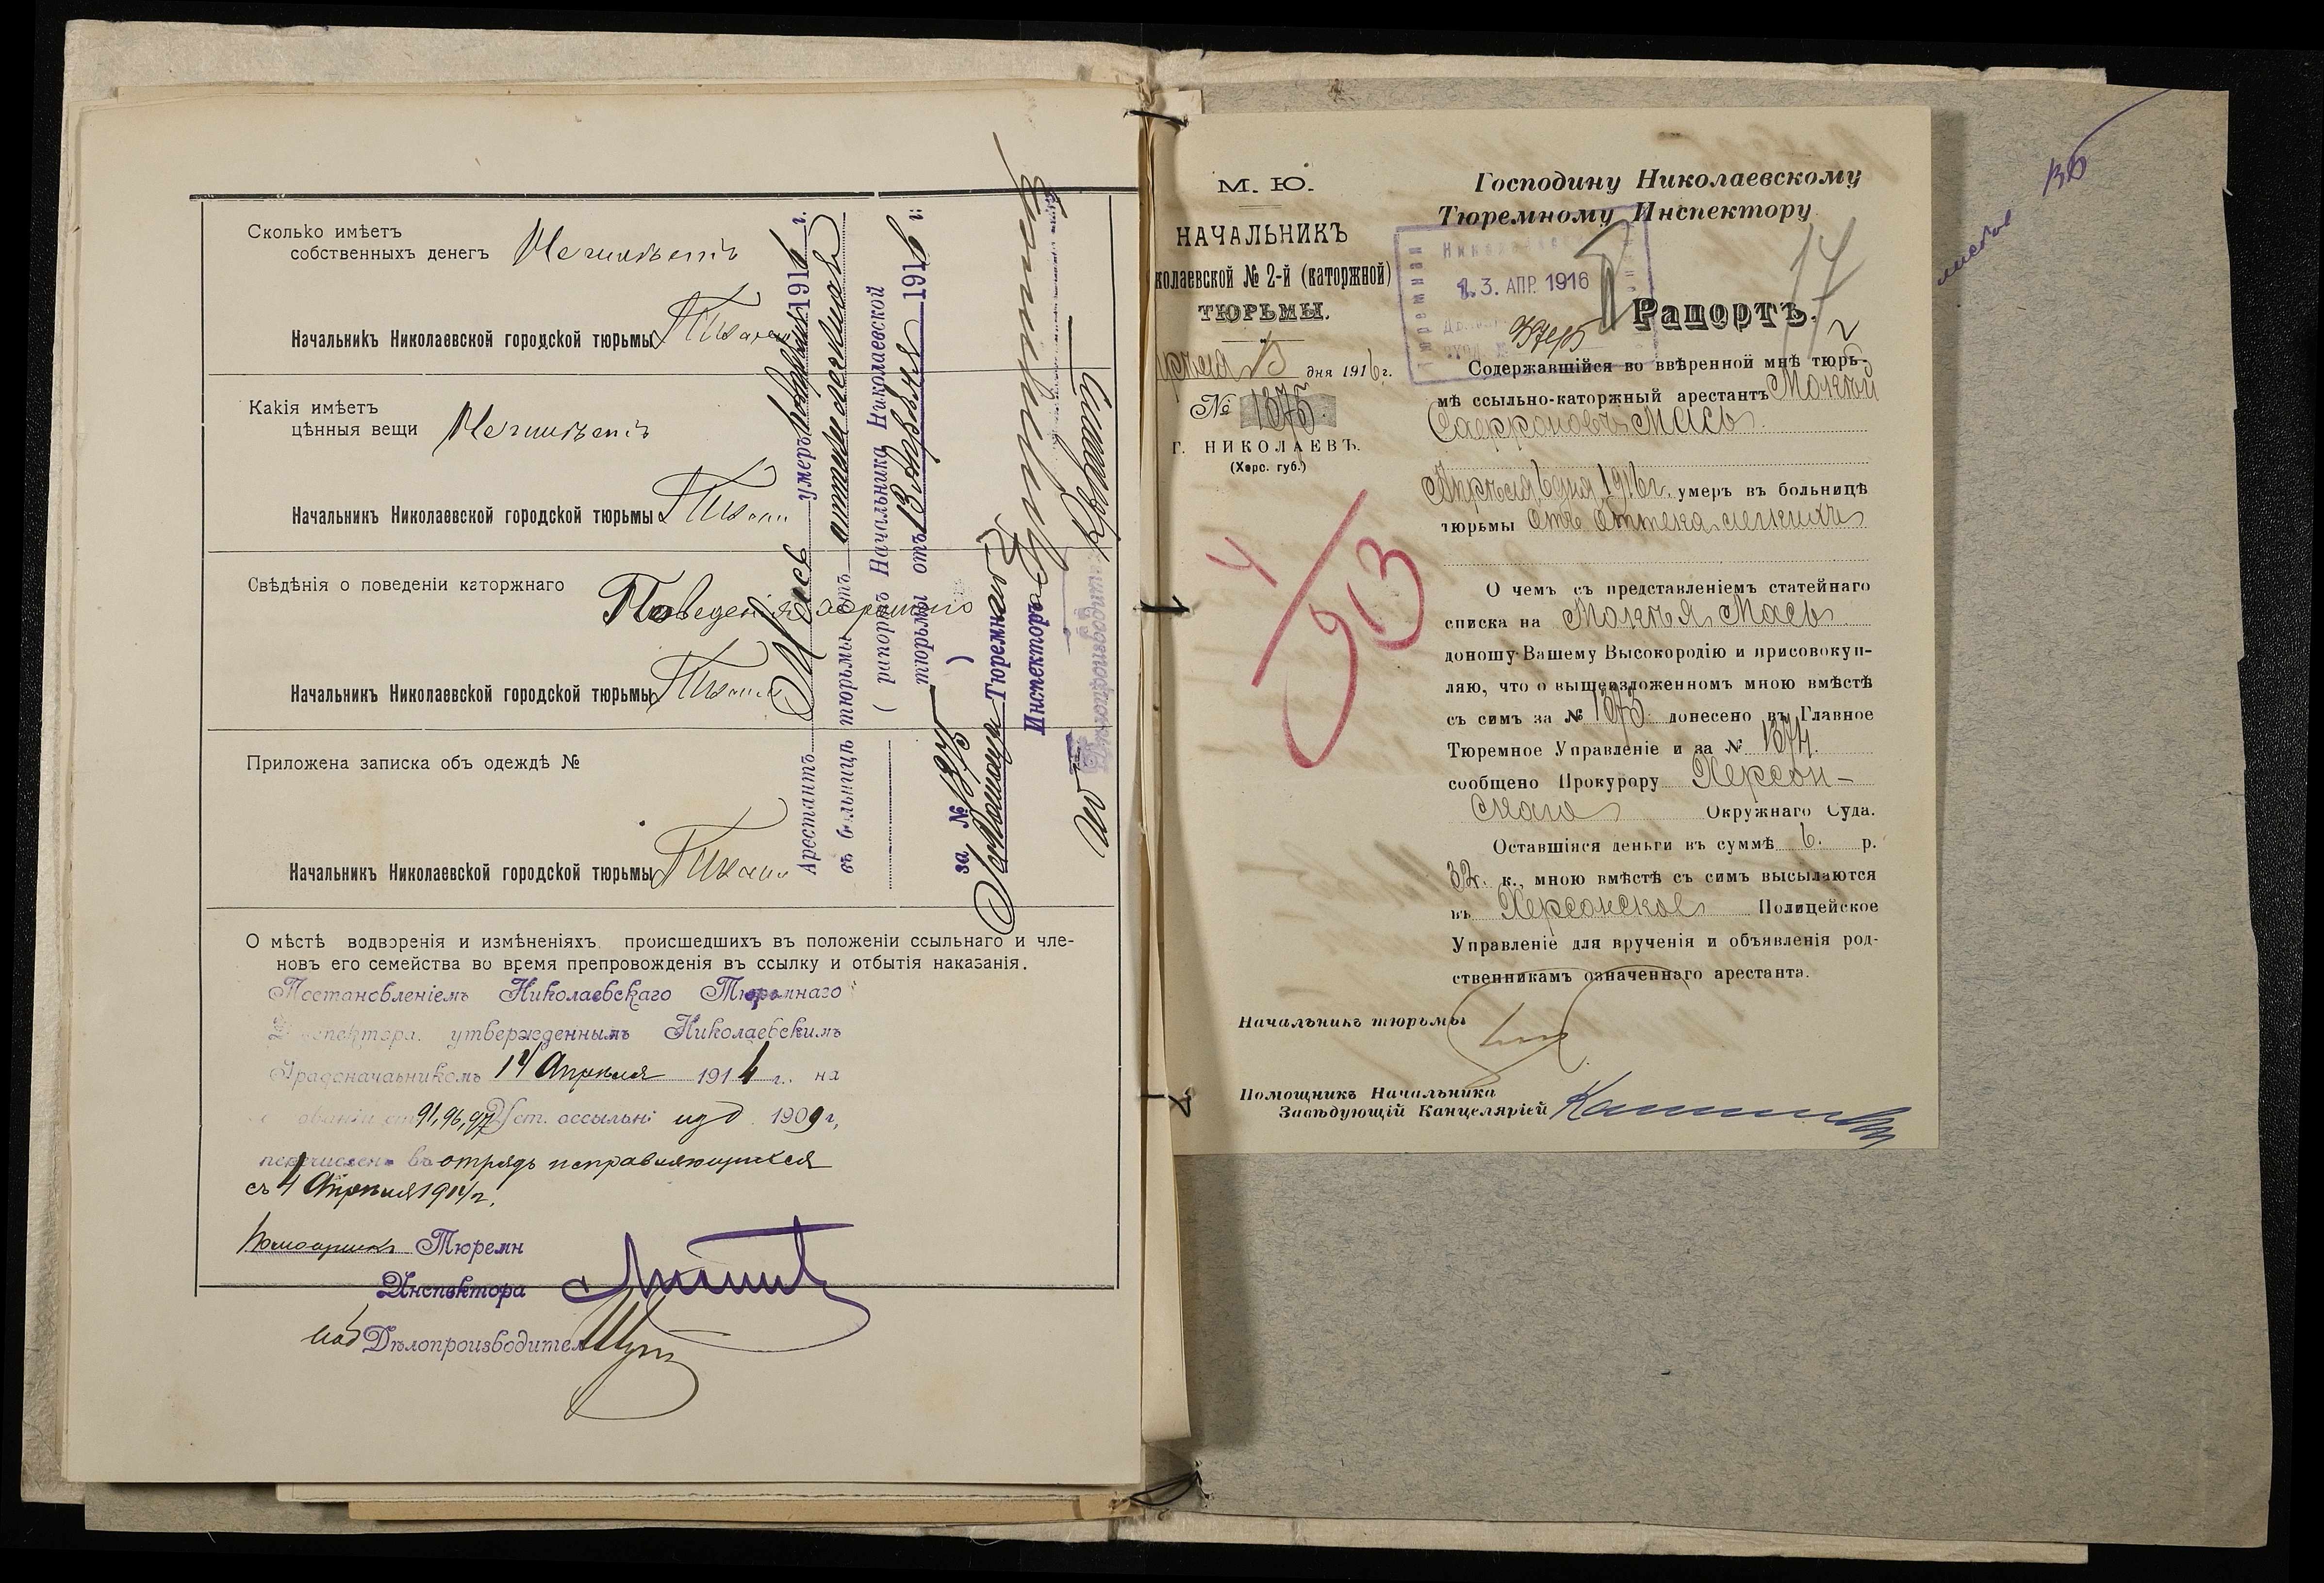 Сколько имѣетъ
собственныхъ денегъ Не имѣетъ
Начальникъ Николаевской городской тюрьмы
Какія имѣетъ
цѣнныя вещи Не имѣетъ
Начальникъ Николаевской городской тюрьмы
Свѣдѣнія о поведеніи каторжнаго
Поведенія хорошаго
Начальникъ Николаевской городской тюрьмы
Приложена записка объ одеждѣ №
Начальникъ Николаевской городской тюрьмы
Арестантъ Мась умеръ 6 апрѣля 1916 г.
въ больницѣ тюрьмы отъ оттека легкихъ
( рапортъ Начальника Николаевской
тюрьмы отъ 13 апрѣля 1916 г.
за № 1375 )
Помощникъ Тюремнаго
Инспектора
Дѣлопроизводитель
О мѣстѣ водворенія и измѣненіяхъ, происшедшихъ въ положеніи ссыльнаго и чле-
новъ его семейства во время препровожденія въ ссылку и отбытія наказанія.
Постановленіемъ Николаевскаго Тюремнаго
Инспектора, утвержденнымъ Николаевскимъ
Градоначальникомъ 14 Апрѣля 1914 г. на
основаніи ст. 91, 96, 97 Уст. о ссыльн. изд. 1909 г,
перечисленъ въ отрядъ исправляющихся
съ 4 Апрѣля 1914 г.
Помощникъ Тюремн
Инспектора
Дѣлопроизводител
М. Ю.
НАЧАЛЬНИКЪ
колаевской № 2-й (каторжной)
ТЮРЬМЫ.
прѣля 13 дня 1916 г.
№ 1375.
Г. НИКОЛАЕВЪ.
(Херс. губ.)
Господину Николаевскому
Тюремному Инспектору
3. АПР. 1916
Рапортъ.
Содержавшійся во ввѣренной мнѣ тюрь-
мѣ ссыльно-каторжный арестантъ Мокій
Сафроновъ Мась
Апрѣля 6 дня 1916 г. умеръ въ больницѣ
тюрьмы отъ оттека легкихъ
О чемъ съ представленіемъ статейнаго
списка на Мокѣя Мась
доношу Вашему Высокородію и присовокуп-
ляю, что о вышеизложенномъ мною вмѣстѣ
съ симъ за № 1373 донесено въ Главное
Тюремное Управленіе и за № 1374.
сообщено Прокурору Херсон-
скаго Окружнаго Суда.
Оставшіяся деньги въ суммѣ 6. р.
32 к., мною вмѣстѣ съ симъ высылаются
въ Херсонское Полицейское
Управленіе для врученія и объявленія род-
ственникамъ означеннаго арестанта.
Начальникъ тюрьмы
Помощникъ Начальника
Завѣдующій Канцеляріей
4
913